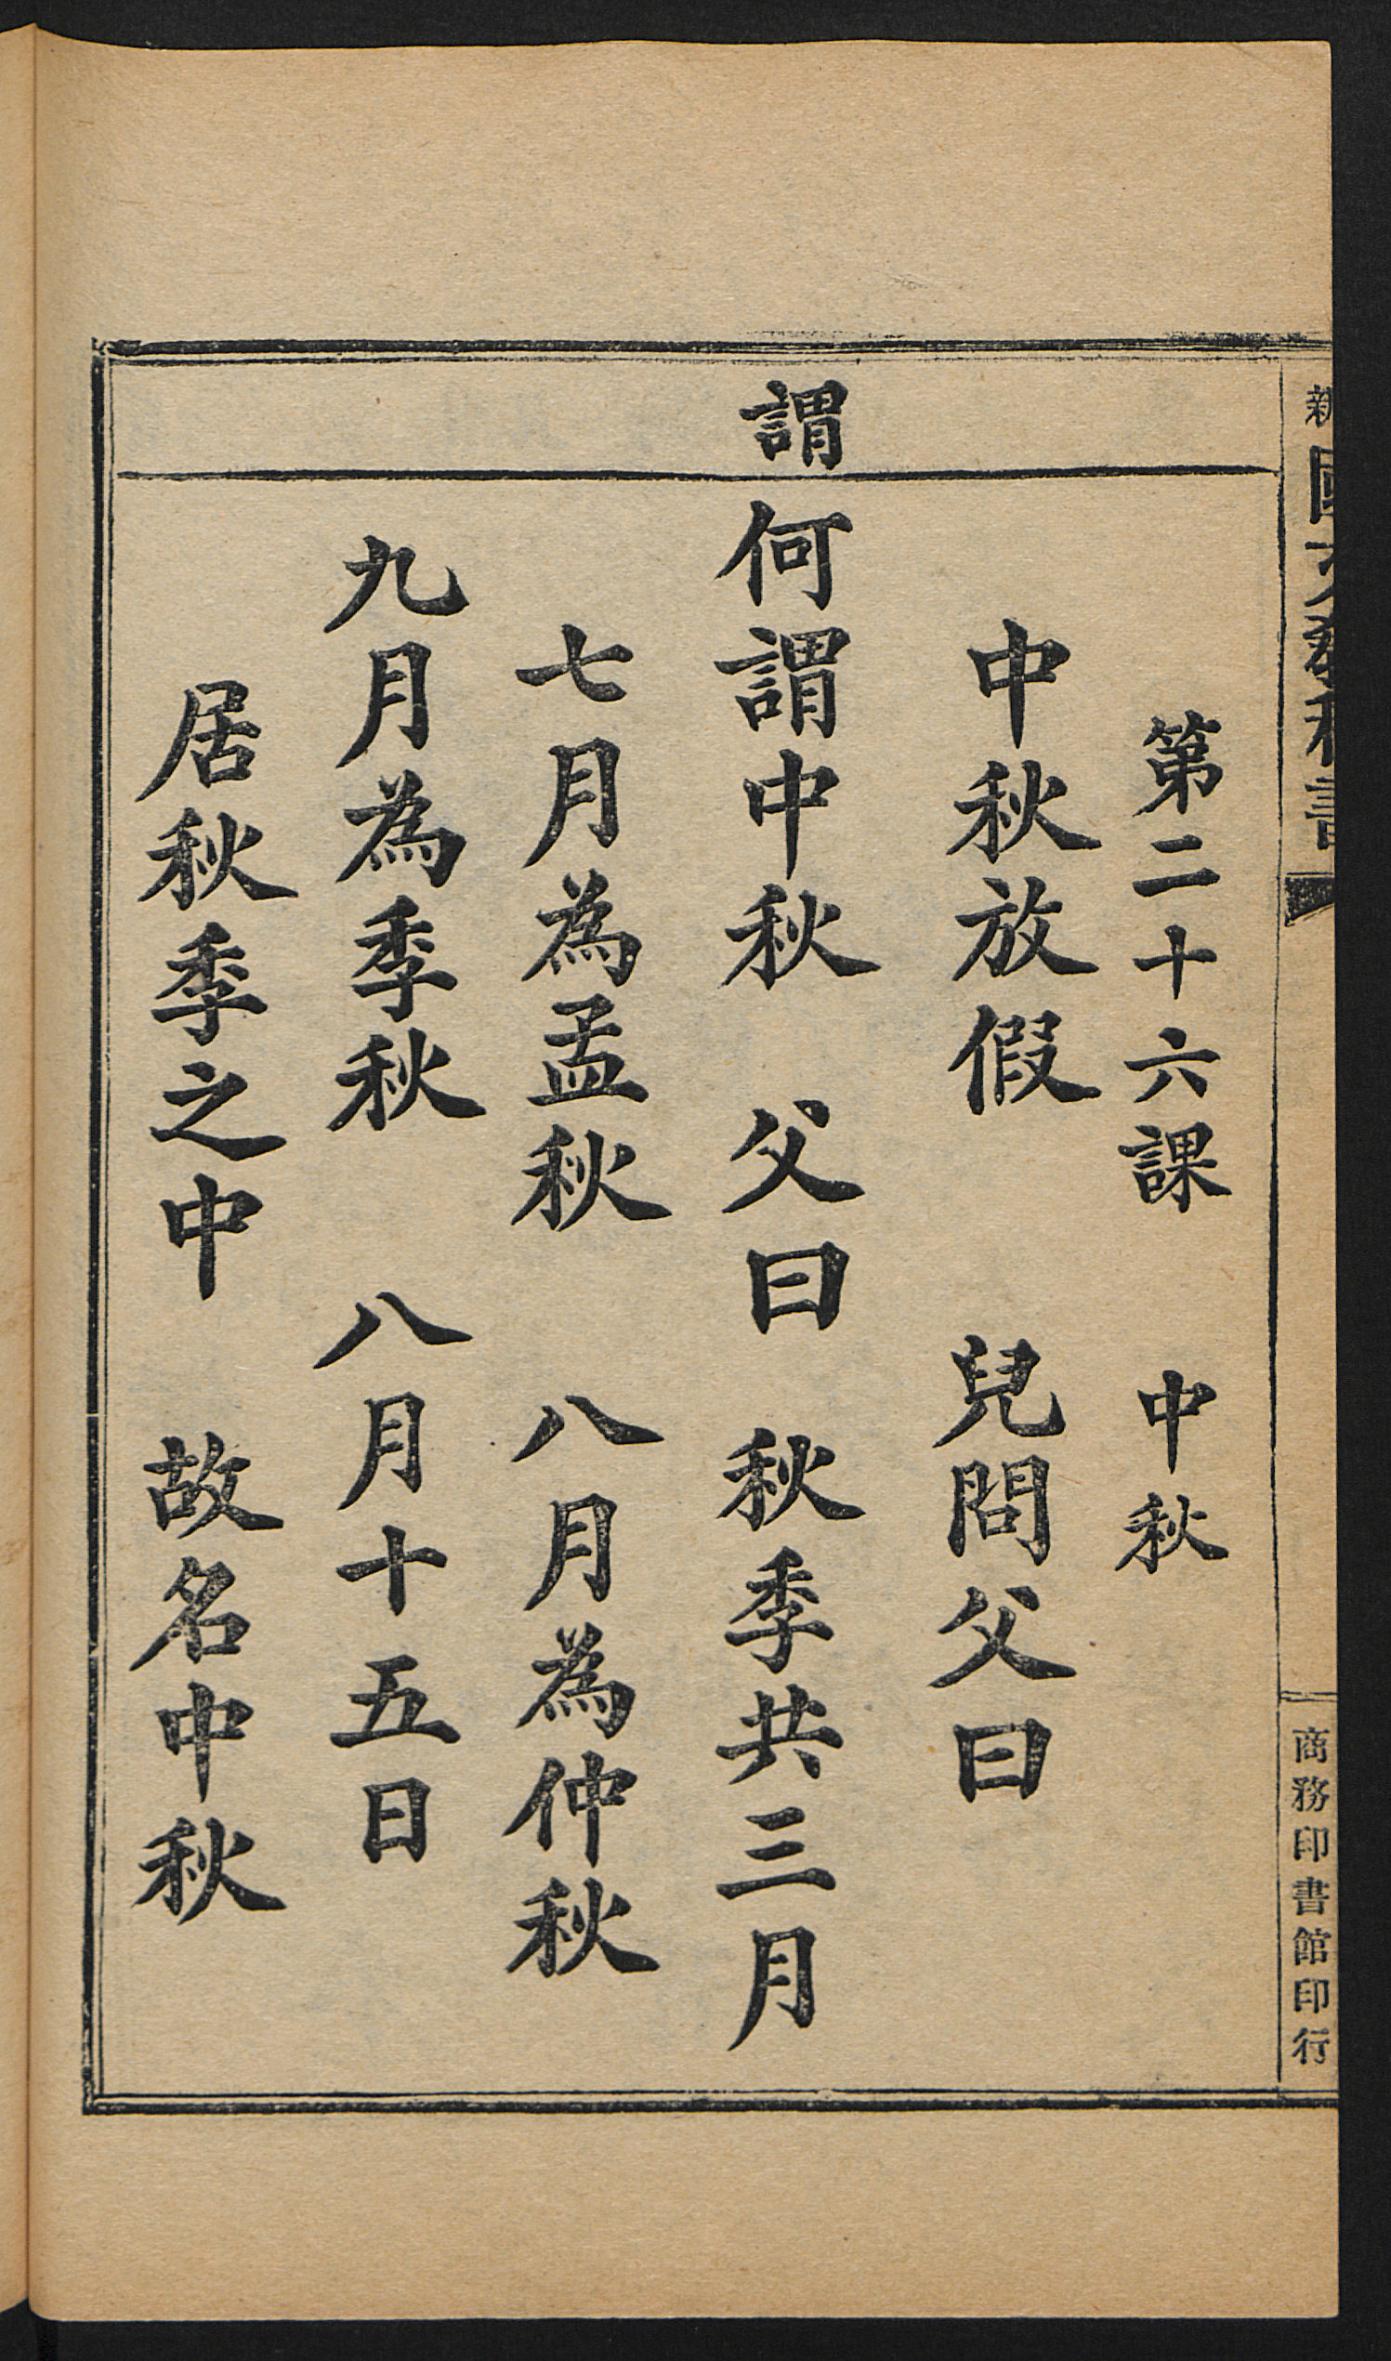 新國文教科書
商務印書館印行
第二十六課 中秋
中秋放假 兒問父曰
謂
何謂中秋 父曰 秋季共三月
七月為孟秋 八月為仲秋
九月為季秋 八月十五日
居秋季之中 故名中秋